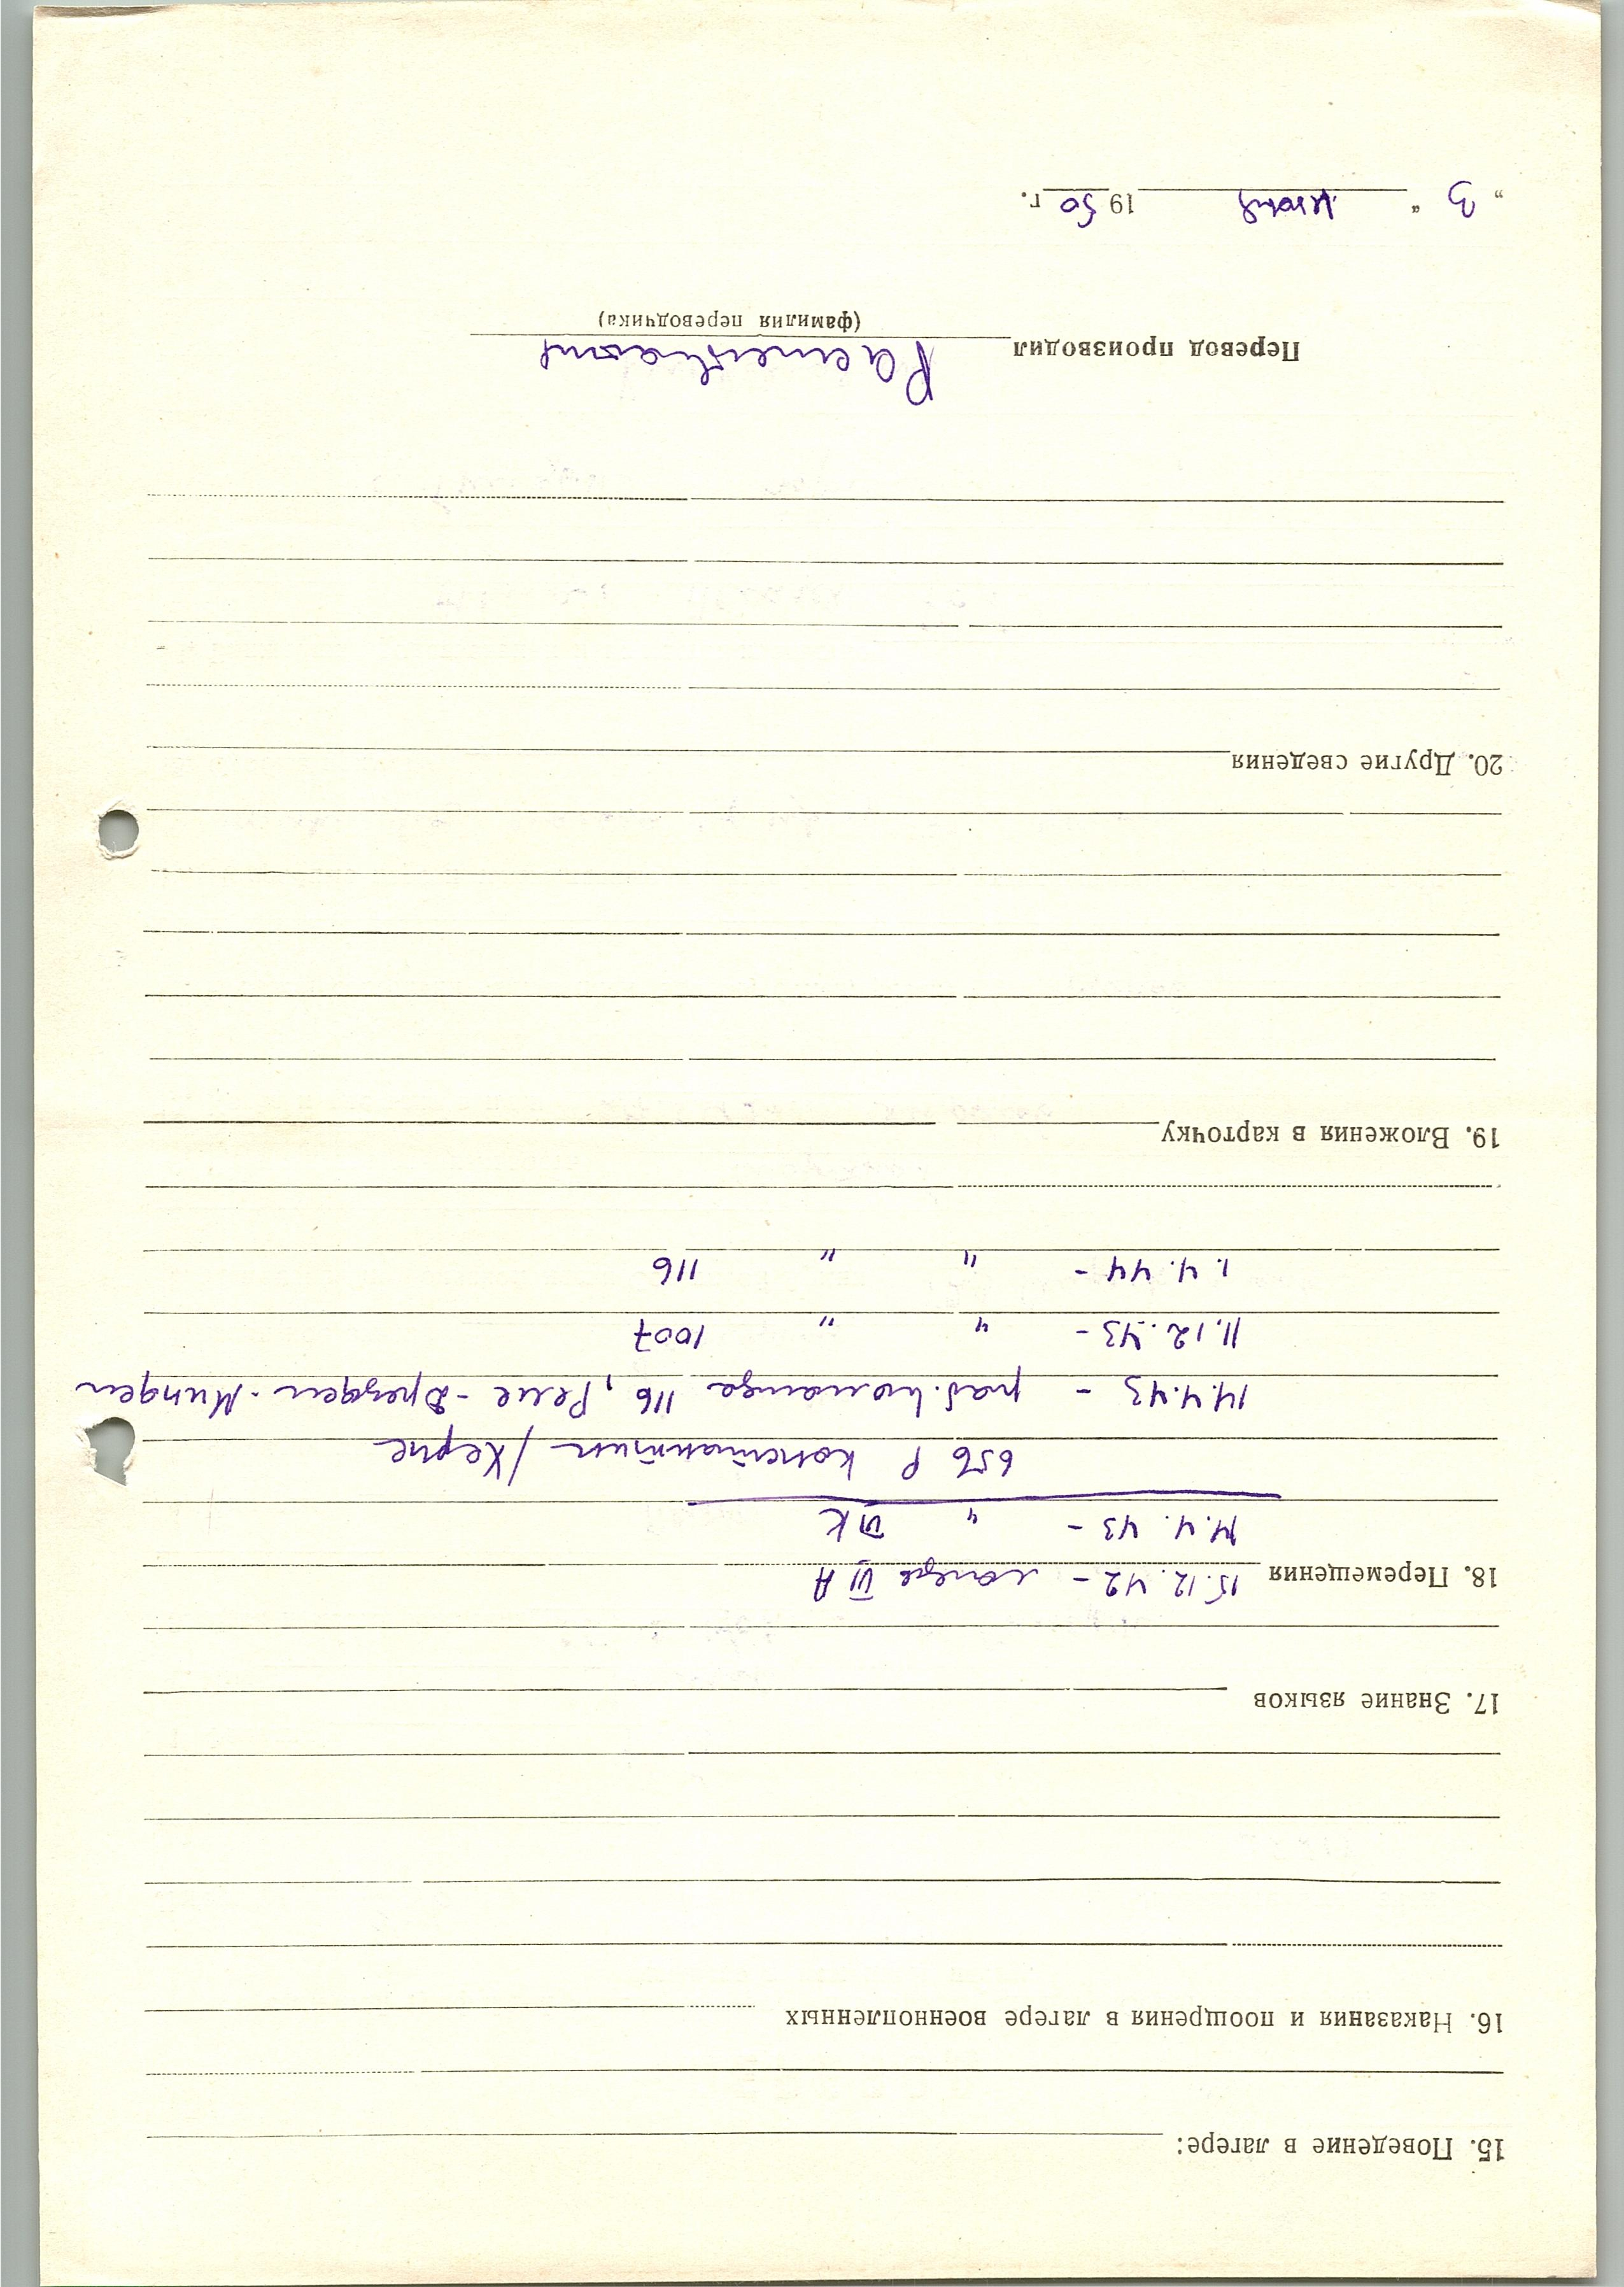 15. Поведение в лагере:
16. Наказания и поощрения в лагере военнопленных
17. Знание языков
18. Перемещения 15.12.42 - лагерь VI A
14.4.43 - " VI K
656 Р Константин / Херне
14.4.43 - раб. команда 116, Реше - Дрезден - Минден
11.12.43 - " " 1007
1.4.44 - " " 116
19. Вложения в карточку
20. Другие сведения
Перевод производил
(фамилия переводчика)
„ 3 “ 1950 г.